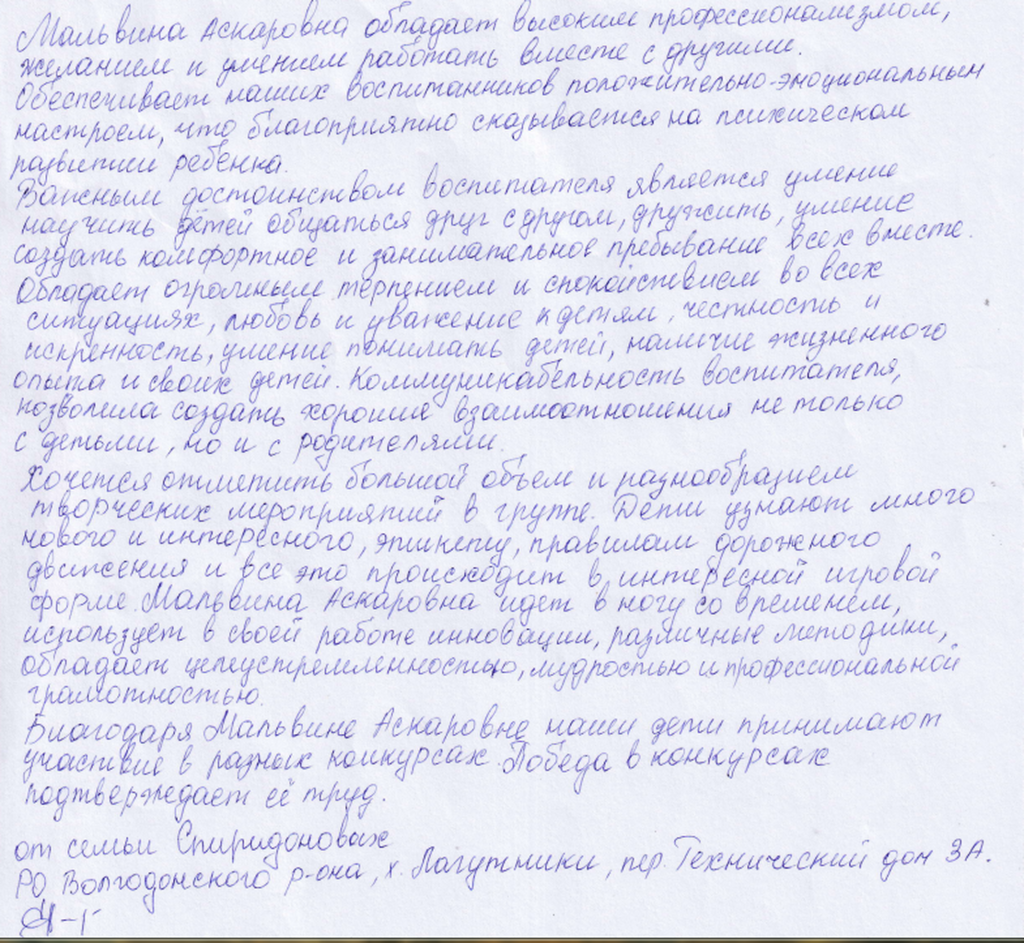 Мальвина Аскаровна обладает высоким профессионализмом,
желанием и умением работать вместе с другими.
Обеспечивает наших воспитанников положительно-эмоциональным
настроем, что благоприятно сказывается на психическом
развитии ребенка.
Важным достоинством воспитателя является умение
научить детей общаться друг с другом, дружить, умение
создать комфортное и занимательное пребывание всех вместе.
Обладает огромным терпением и спокойствием во всех
ситуациях, любовь и уважение к детям, честность и
искренность, умение понимать детей, наличие жизненного
опыта и своих детей. Коммуникабельность воспитателя,
позволила создать хорошие взаимоотношения не только
с детьми, но и с родителями.
Хочется отметить большой объем и разнообразием
творческих мероприятий в группе. Дети узнают много
нового и интересного, этикету, правилам дорожного
движения и все это происходит в интересной игровой
форме. Мальвина Аскаровна идет в ногу со временем,
использует в своей работе инновации, различные методики,
обладает целеустремленностью, мудростью и профессиональной
грамотностью.
Благодаря Мальвине Аскаровне наши дети принимают
участвие в разных конкурсах. Победа в конкурсах
подтверждает её труд.
от семьи Спиридоновых
РО, Волгодонского р-она, х. Лагутники, пер. Технический дом 3А.